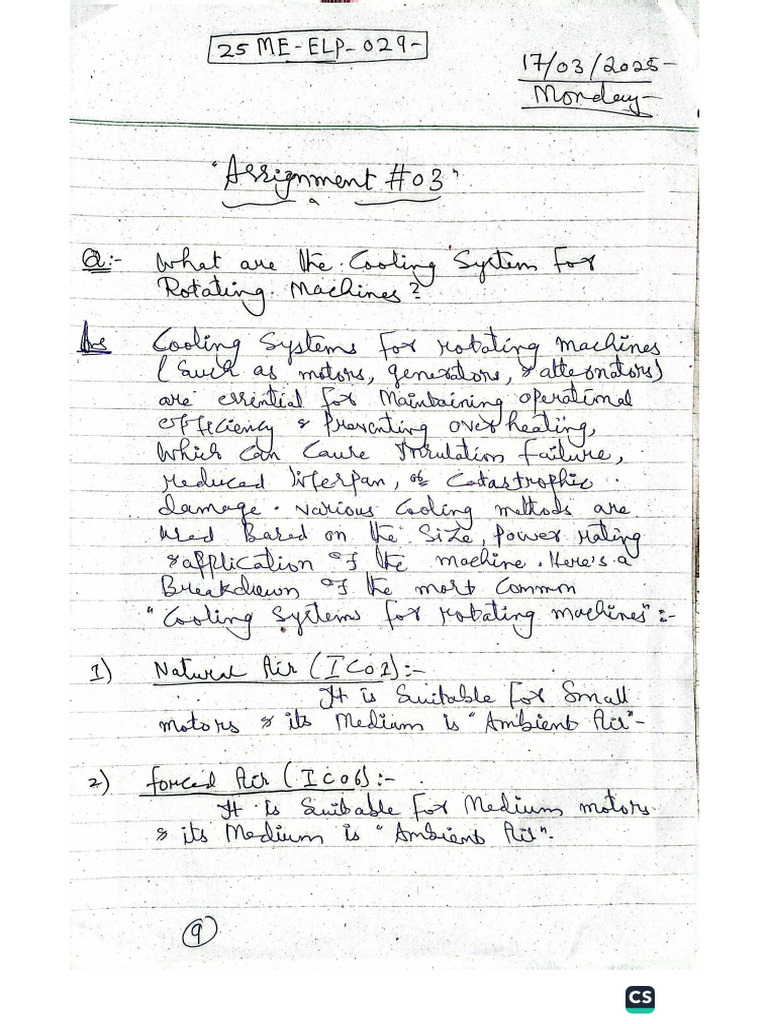 25 ME-ELP-029-
17/03/2025-
Monday-
"Assignment #03"
Q:- What are the Cooling System for
Rotating Machines?
Ans Cooling Systems for rotating machines
(Such as motors, generators, & alternators)
are essential for Maintaining operational
efficiency & Preventing over heating,
which can Cause Insulation failure,
reduced lifespan, or Catastrophic
damage. Various Cooling methods are
used Based on the Size, power rating
& application of the machine. Here's a
Breakdown of the most Common
"Cooling Systems for rotating machines":-
1) Natural Air (IC01):-
It is Suitable for Small
motors & its Medium is "Ambient Air"-
2) forced Air (IC06):-
It is Suitable for Medium motors
& its Medium is "Ambient Air".
9
CS